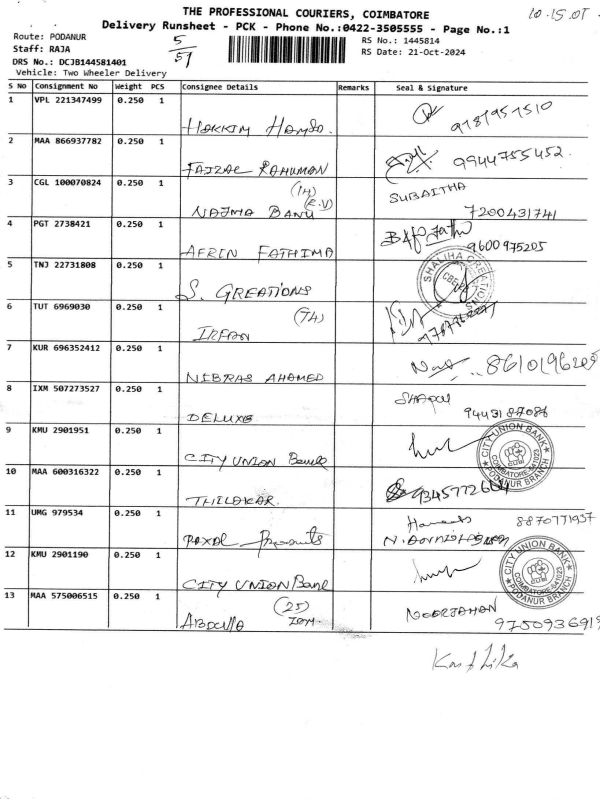 THE PROFESSIONAL COURIERS, COIMBATORE
10.15.07
Delivery Runsheet - PCK - Phone No.:0422-3505555 - Page No.:1
Route: PODANUR
5
RS No.: 1445814
Staff: RAJA
51
RS Date: 21-Oct-2024
DRS No.: DCJB144581401
Vehicle: Two Wheeler Delivery
S No Consignment No Weight PCS Consignee Details Remarks Seal & Signature
1 VPL 221347499 0.250 1
HAKKIM 9787957510
2 MAA 866937782 0.250 1
FAIZAL RAHUMAN 9944755452
3 CGL 100070824 0.250 1
(1H) SUBAITHA
NAJMA BANU (R.V) 7200431741
4 PGT 2738421 0.250 1
AFRIN FATHIMA 9600975205
5 TNJ 22731808 0.250 1
S. GREATIONS
SHALIHA CREATIONS
CBE
6 TUT 6969030 0.250 1
(7H)
IRFAN
7 KUR 696352412 0.250 1
NIBRAS AHAMED 8610196205
8 IXM 507273527 0.250 1
DELUXE 9443187086
9 KMU 2901951 0.250 1
CITY UNION Bank
CITY UNION BANK
COIMBATORE-641023
PODANUR BRANCH
10 MAA 600316322 0.250 1
THILAKAR 9345772664
11 UMG 979534 0.250 1
8870771937
12 KMU 2901190 0.250 1
CITY UNION Bank
CITY UNION BANK
COIMBATORE-641023
PODANUR BRANCH
13 MAA 575006515 0.250 1
(25) NOORJAHAN
ABDULLA 9750936919